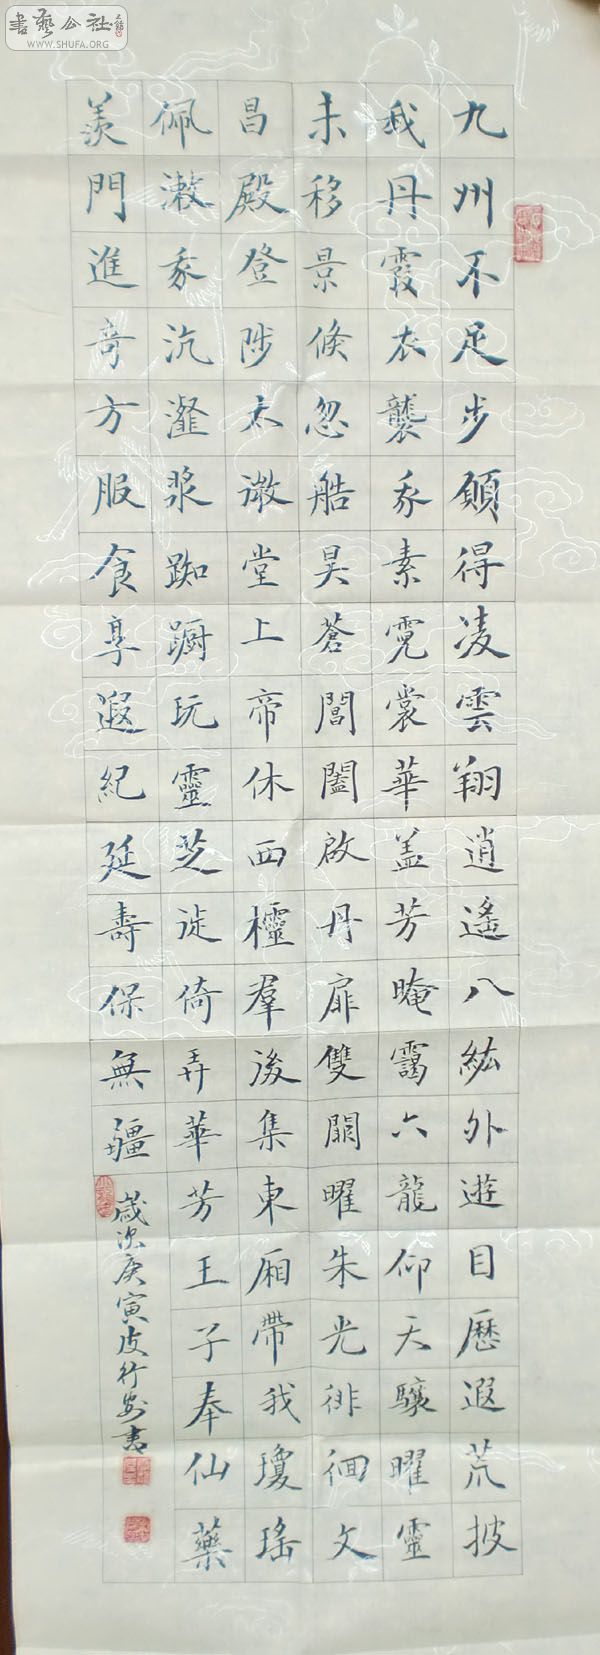 書藝公社
WWW.SHUFA.ORG
九州不足步願得凌雲翔逍遙八紘外遊目歷遐荒披
我丹霞衣襲我素霓裳華蓋芳晻靄六龍仰天驤曜靈
未移景倏忽艁昊蒼閶闔啟丹扉雙闕曜朱光徘徊文
昌殿登陟太微堂上帝休西櫺羣後集東廂帶我瓊瑤
佩漱我沆瀣漿踟躕玩靈芝徙倚弄華芳王子奉仙藥
羨門進奇方服食享遐紀延壽保無疆
歲次庚寅皮行書